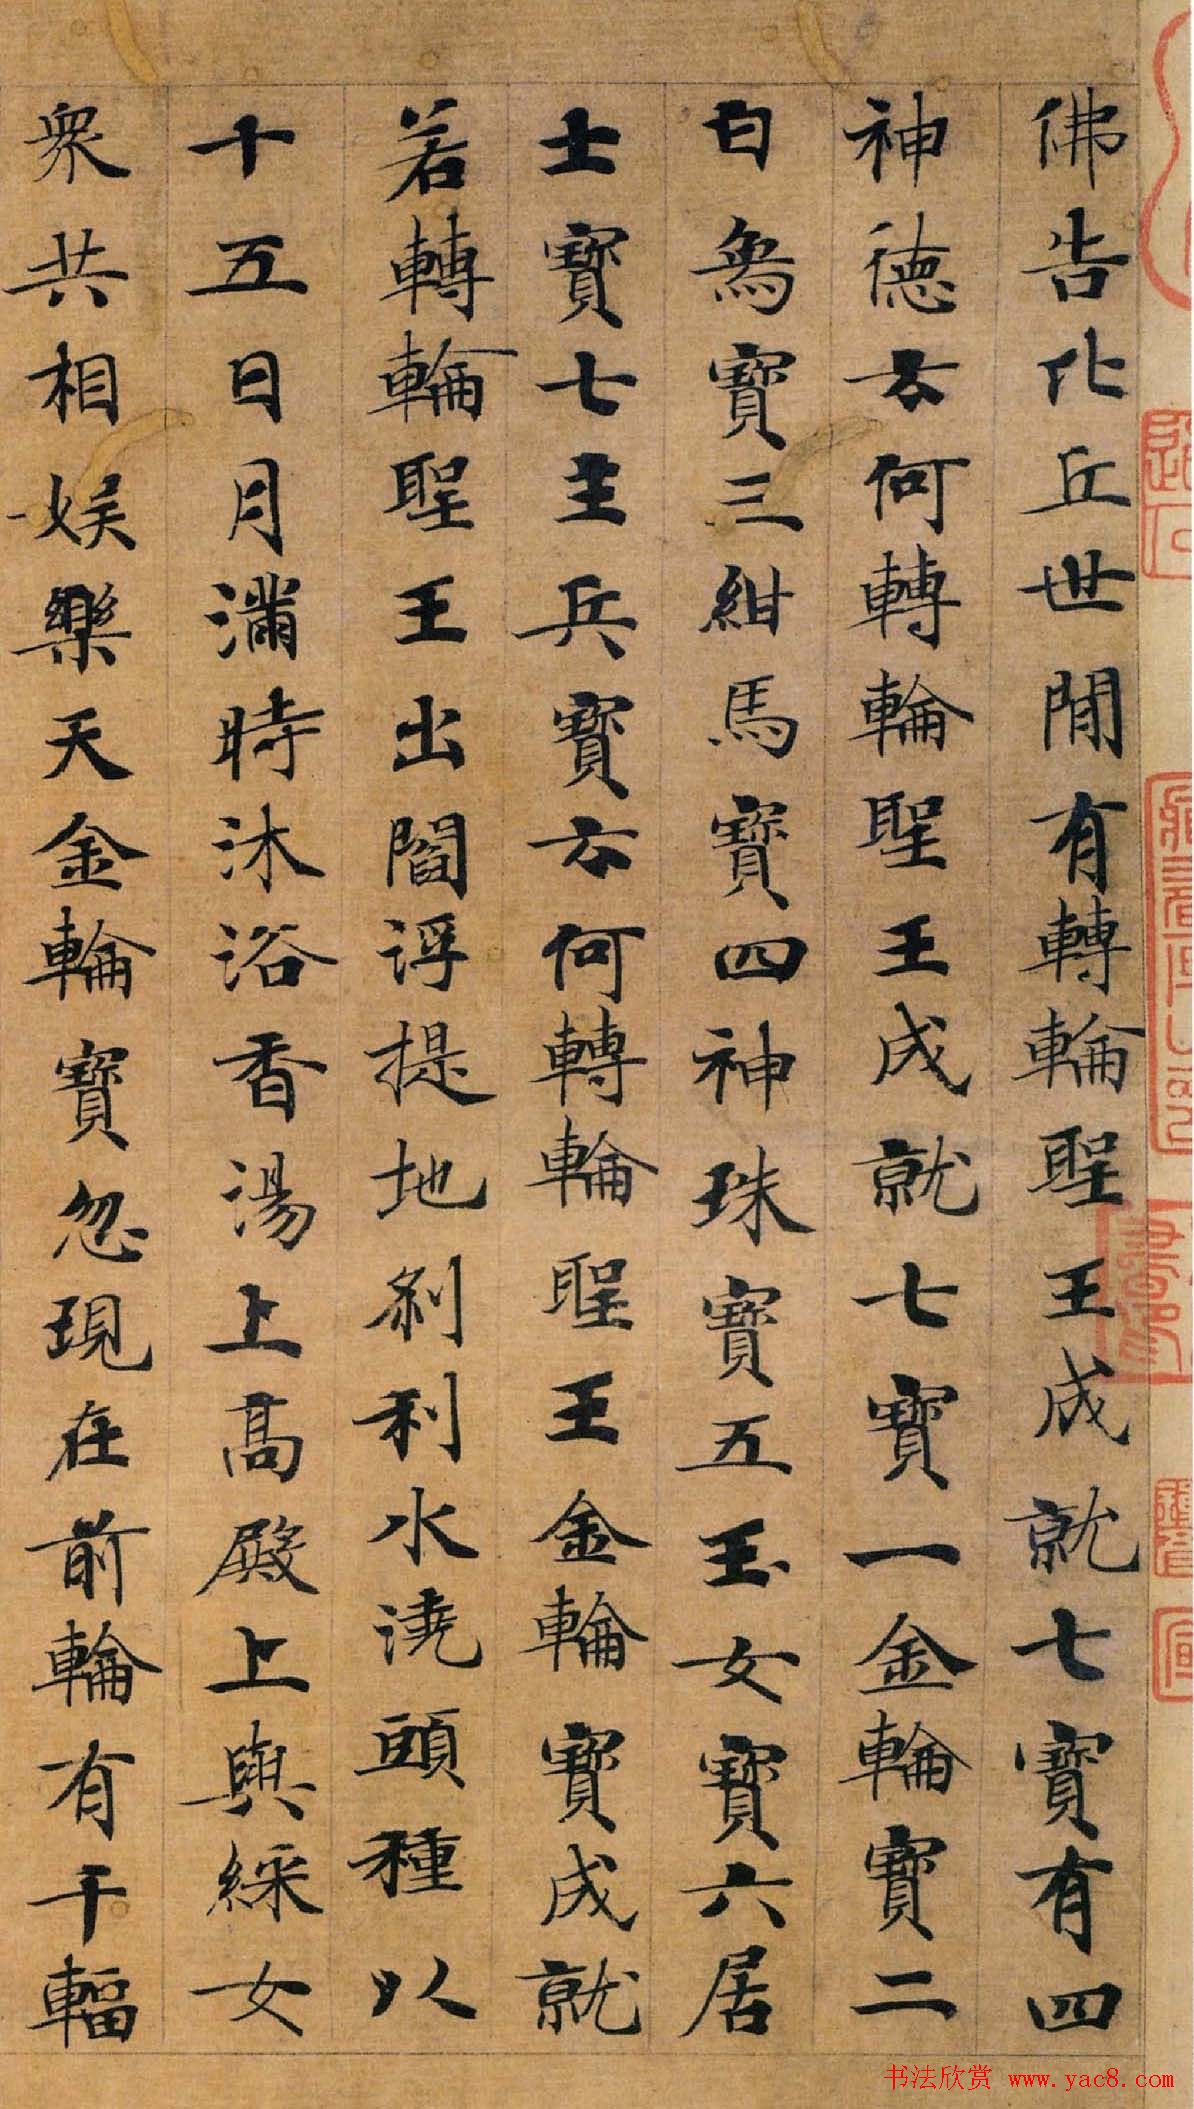 佛告比丘世間有轉輪聖王成就七寶有四
神德云何轉輪聖王成就七寶一金輪寶二
白象寶三紺馬寶四神珠寶五玉女寶六居
士寶七主兵寶云何轉輪聖王金輪寶成就
若轉輪聖王出閻浮提地剎利水澆頭種以
十五日月滿時沐浴香湯上高殿上與綵女
眾共相娛樂天金輪寶忽現在前輪有千輻
书法欣赏 www.yac8.com